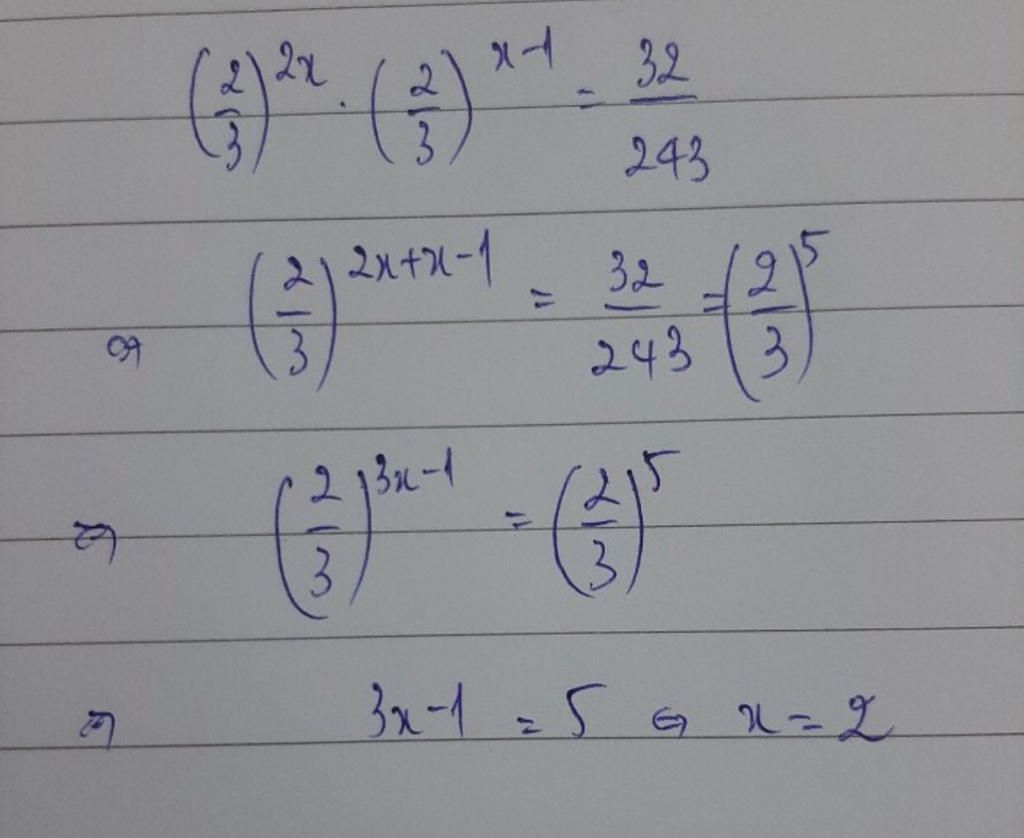 (2/3)^2x · (2/3)^x-1 = 32/243
⇔ (2/3)^2x+x-1 = 32/243 = (2/3)^5
⇔ (2/3)^3x-1 = (2/3)^5
⇔ 3x-1 = 5 ⇔ x = 2